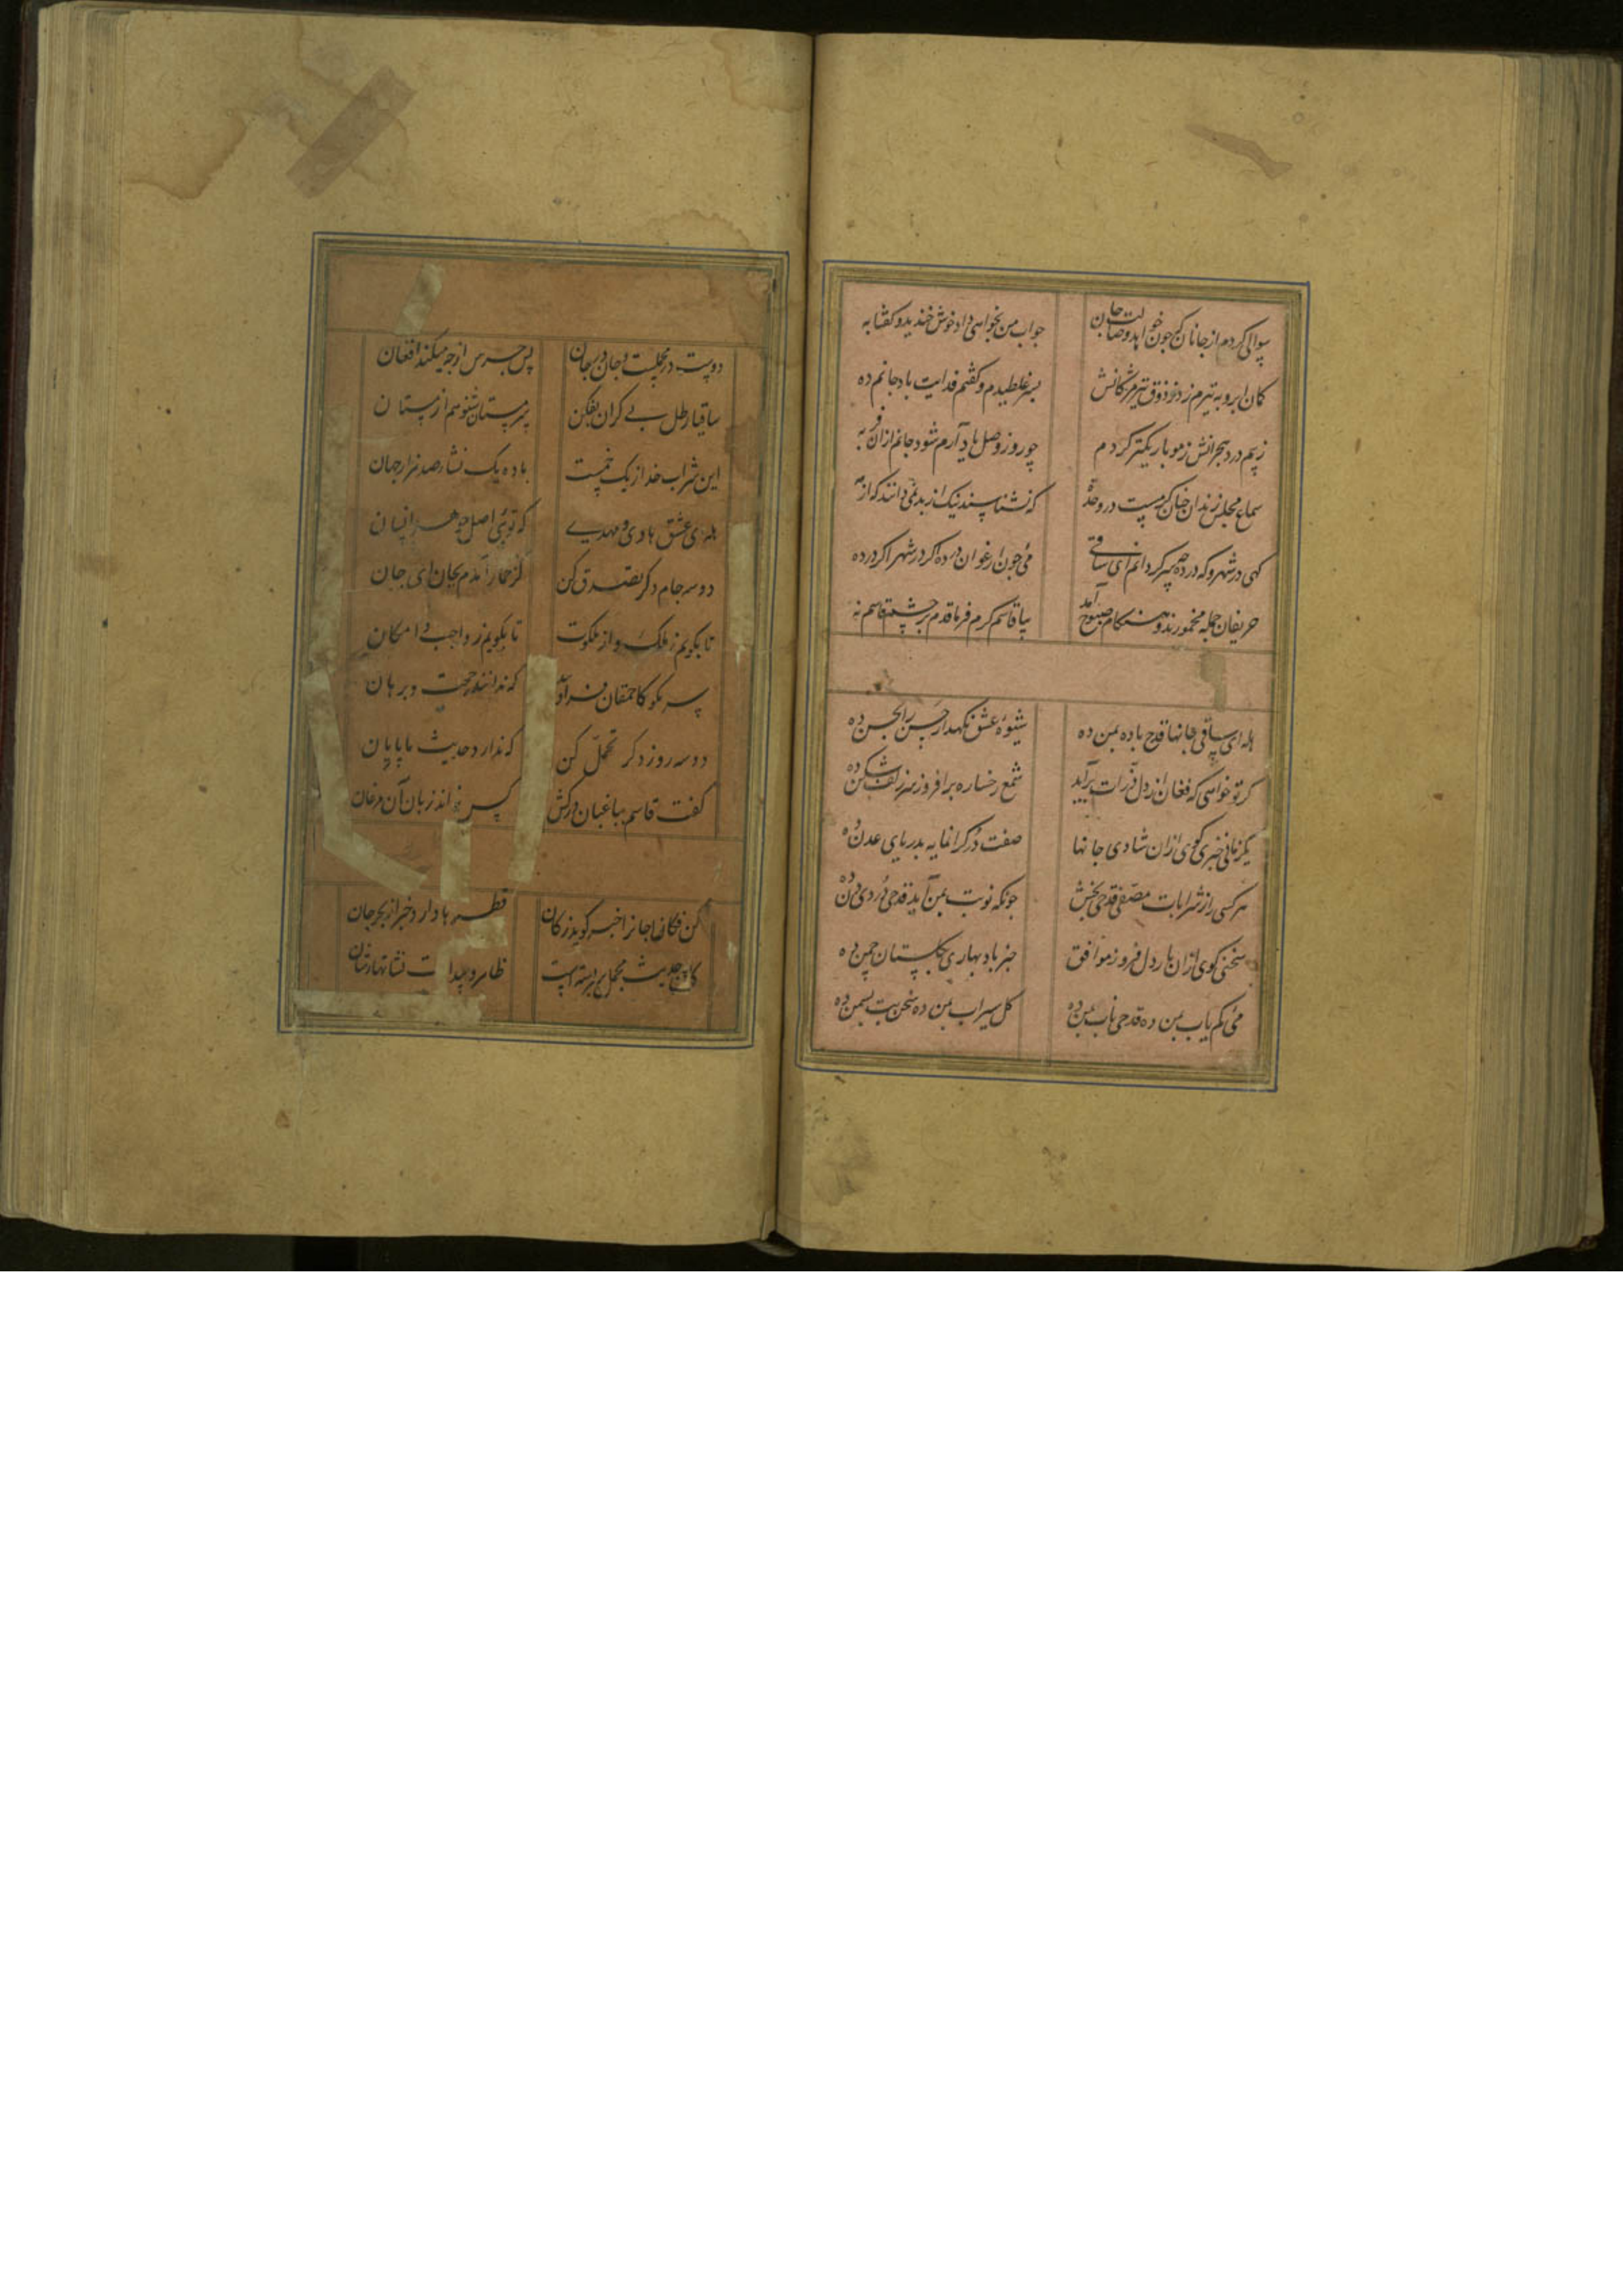 سوالی کردم از جانان که چون خواهد وصالت جان جواب من بخواهی داد خوش خندید و گفتا به
کمان ابرو به تیرم زد از ذوق تیر مژگانش بسر غلطیدم و گفتم فدایت باد جانم ده
ز بیم درد هجرانش ز مو باریکتر کردم چو روز وصل یاد آرم شود جانم از آن فربه
سماع مجلس رندان چنان کرمست در وحدت که نشناسند نیک از بد نمی دانند که از مه
کهی در شهر و که در ده چه سر کردانم ای ساقی می چون ارغوان در ده اکر در شهر اکر در ده
حریفان جمله مخمورند و هنکام صبوح آمد بیا قاسم کرم فرما قدم بر چشم قاسم نه
هله ای ساقی جانها قدح باده بمن ده شیوه عشق نکهدار حسن را بحسن ده
کر تو خواهی که فغان از دل ذرات برآید شمع رخساره برافروز سر زلف شکن ده
یکزمانی خبری کوی از آن شادی جانها صفت در کرانمایه بدریای عدن ده
هر کسی را ز شرابات مصفی قدحی بخش چونکه نوبت بمن آید قدحی دردی دن ده
سخنی کوی از آن یار دل فروز موافق خبر باد بهاری بکلستان چمن ده
می کم یاب بمن ده قدحی ناب بمن ده کل سیراب بمن ده سخن بت بسمن ده
دوست در مجلست و جان در جان پس جرس از چه میکند افغان
ساقیا رطل بی کران بفکن پر مستان شنو هم از مستان
این شراب خدا ز یک خمست باده یک نشاء صد هزار جهان
هله ای عشق هادی و مهدی که تویی اصل جوهر انسان
دو سه جام دکر تصدق کن کز خمار آمدم بجان ای جان
تا بکویم ز ملک و از ملکوت تا بکویم ز واجب و امکان
سر مکو کاحمقان که ندانند حجت و برهان
دو سه روز دکر تحمل کن که ندارد حدیث ما پایان
کفت قاسم بباغبان درکش کس نداند زبان آن مرغان
کن فکان جان را خبر کوید ز کان قطره ها دارد خبر از بحر جان
کان حدیث مجمل سر بسته است ظاهر و پیدا ت نشانها در نشان